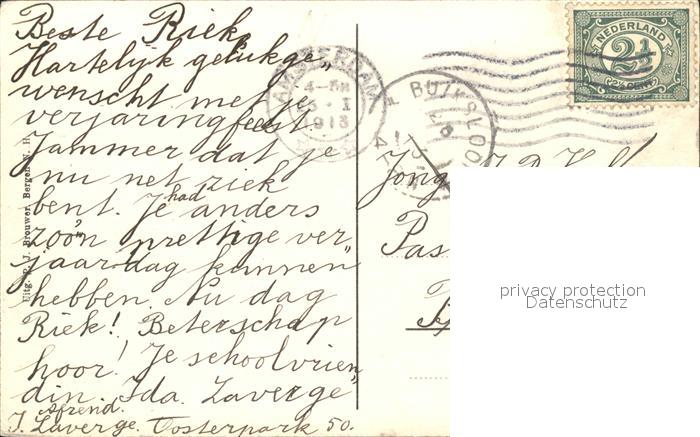 Beste Riek,
Hartelijk geluk ge„
wenscht met je
verjaringfeest.
Jammer dat je
nu net ziek
bent. Je had anders
zoo'n prettige ver„
jaardag kunnen
hebben. Nu dag
Riek! Beterschap
hoor! Je schoolvrien„
din. Ida Laverge
Afzend.
I. Laverge. Oosterpark 50.
Uitg. P. J. Brouwer, Bergen N. H.
AMSTERDAM
1913
BUIKSLOOT
NEDERLAND
2½
2½ CENT
Jong
Pas
privacy protection
Datenschutz